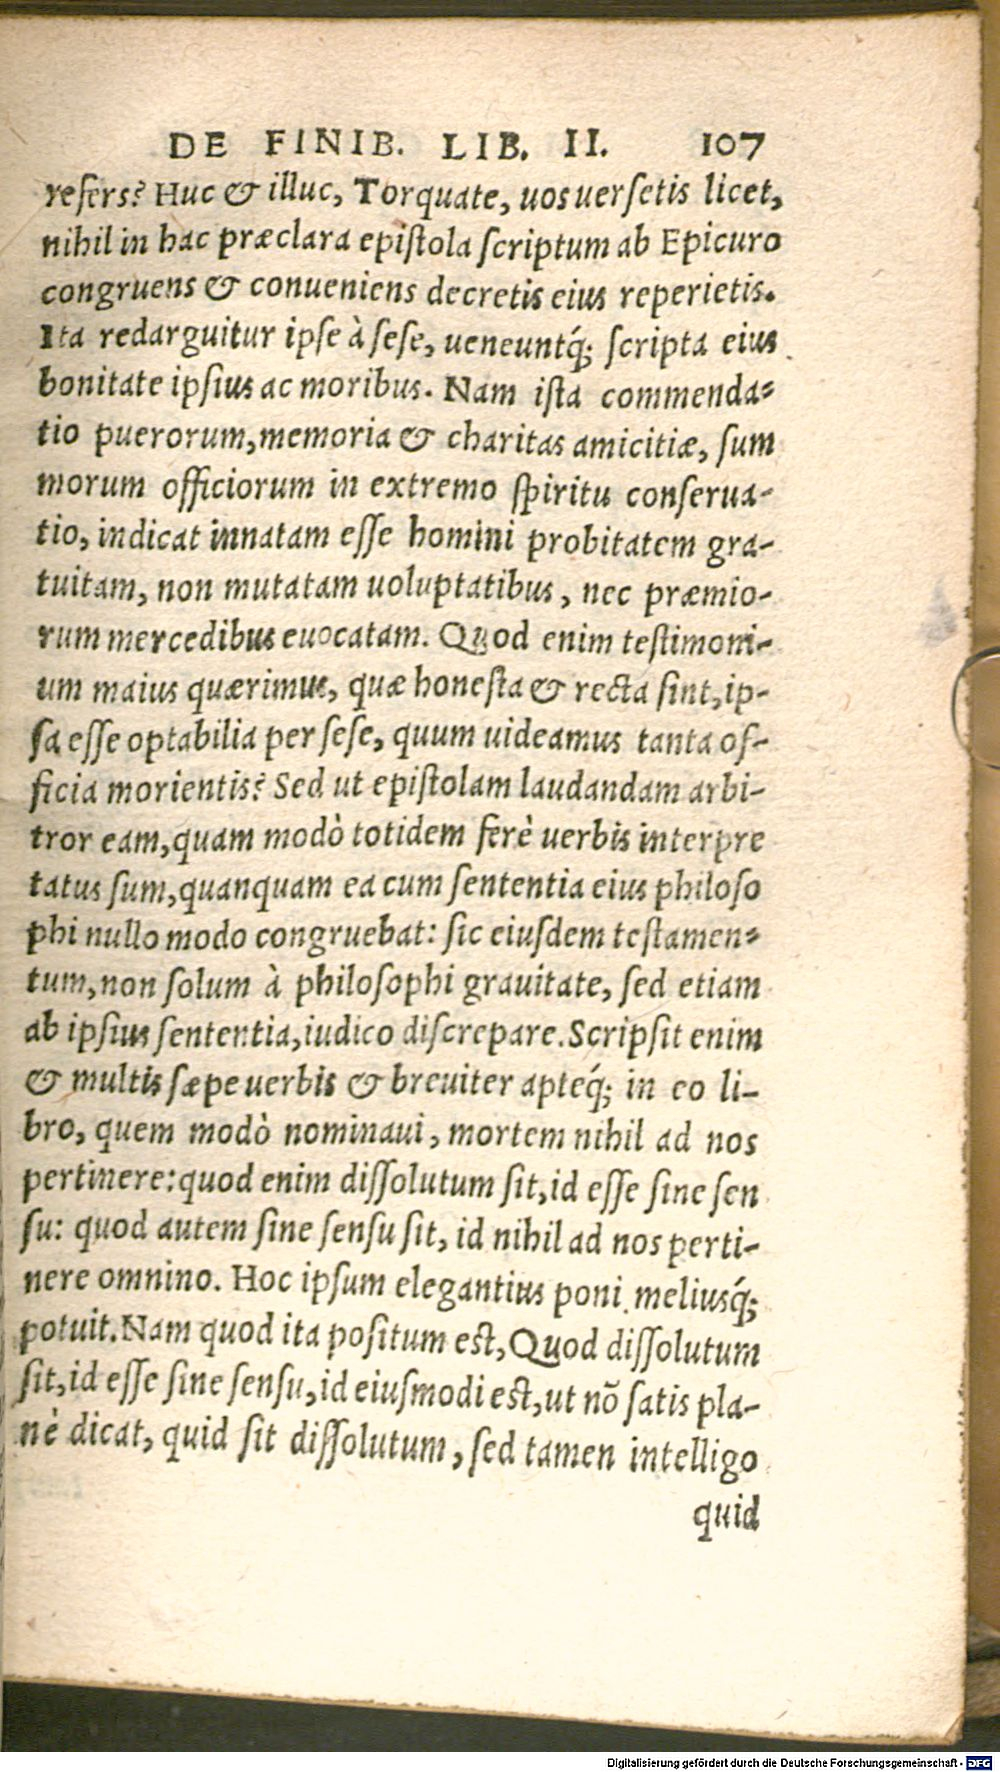 DE FINIB. LIB. II. 107
refers? Huc & illuc, Torquate, uos uerſetis licet,
nihil in hac præclara epiſtola ſcriptum ab Epicuro
congruens & conueniens decretis eius reperietis.
Ita redarguitur ipſe à ſeſe, ueneuntq́; ſcripta eius
bonitate ipſius ac moribus. Nam iſta commenda-
tio puerorum, memoria & charitas amicitiæ, ſum
morum officiorum in extremo ſpiritu conſerua-
tio, indicat innatam eſſe homini probitatem gra-
tuitam, non mutatam uoluptatibus, nec præmio-
rum mercedibus euocatam. Quod enim teſtimoni-
um maius quærimus, quæ honeſta & recta ſint, ip-
ſa eſſe optabilia per ſeſe, quum uideamus tanta of-
ficia morientis? Sed ut epiſtolam laudandam arbi-
tror eam, quam modò totidem ferè uerbis interpre
tatus ſum, quanquam ea cum ſententia eius philoſo
phi nullo modo congruebat: ſic eiuſdem teſtamen-
tum, non ſolum à philoſophi grauitate, ſed etiam
ab ipſius ſententia, iudico diſcrepare. Scripſit enim
& multis ſæpe uerbis & breuiter apteq́; in eo li-
bro, quem modò nominaui, mortem nihil ad nos
pertinere: quod enim diſſolutum ſit, id eſſe ſine ſen
ſu: quod autem ſine ſenſu ſit, id nihil ad nos perti-
nere omnino. Hoc ipſum elegantius poni meliusq́;
potuit. Nam quod ita poſitum eſt, Quod diſſolutum
ſit, id eſſe ſine ſenſu, id eiuſmodi eſt, ut nõ ſatis pla-
nè dicat, quid ſit diſſolutum, ſed tamen intelligo
quid
Digitalisierung gefördert durch die Deutsche Forschungsgemeinschaft - DFG